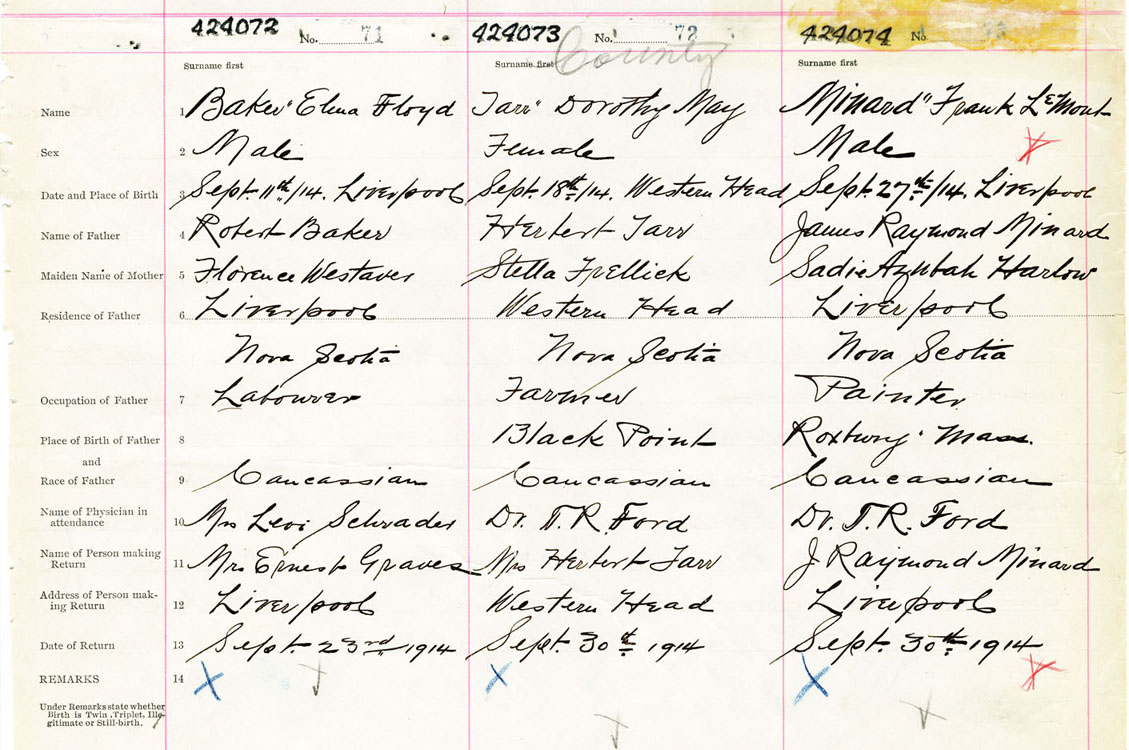 424072 No. 71 424073 No. 72 424074 No.
County
Surname first Surname first Surname first
Name 1 Baker" Elma Floyd Tarr" Dorothy May Minard" Frank LeMont
Sex 2 Male Female Male
Date and Place of Birth 3 Sept. 11th/14. Liverpool Sept. 18th/14. Western Head Sept. 27th/14. Liverpool
Name of Father 4 Robert Baker Herbert Tarr James Raymond Minard
Maiden Name of Mother 5 Florence Westaver Stella Frellick Sadie Harlow
Residence of Father 6 Liverpool Western Head Liverpool
Nova Scotia Nova Scotia Nova Scotia
Occupation of Father 7 Labourer Farmer Painter
Place of Birth of Father 8 Black Point Roxbury Mass.
and
Race of Father 9 Caucassian Caucassian Caucassian
Name of Physician in
attendance 10 Mrs Levi Schrader Dr. T. R. Ford Dr. T. R. Ford
Name of Person making
Return 11 Mrs Ernest Graves Mrs Herbert Tarr J Raymond Minard
Address of Person mak-
ing Return 12 Liverpool Western Head Liverpool
Date of Return 13 Sept. 23rd 1914 Sept. 30th 1914 Sept. 30th 1914
REMARKS 14
Under Remarks state whether
Birth is Twin, Triplet, Ille-
gitimate or Still-birth.